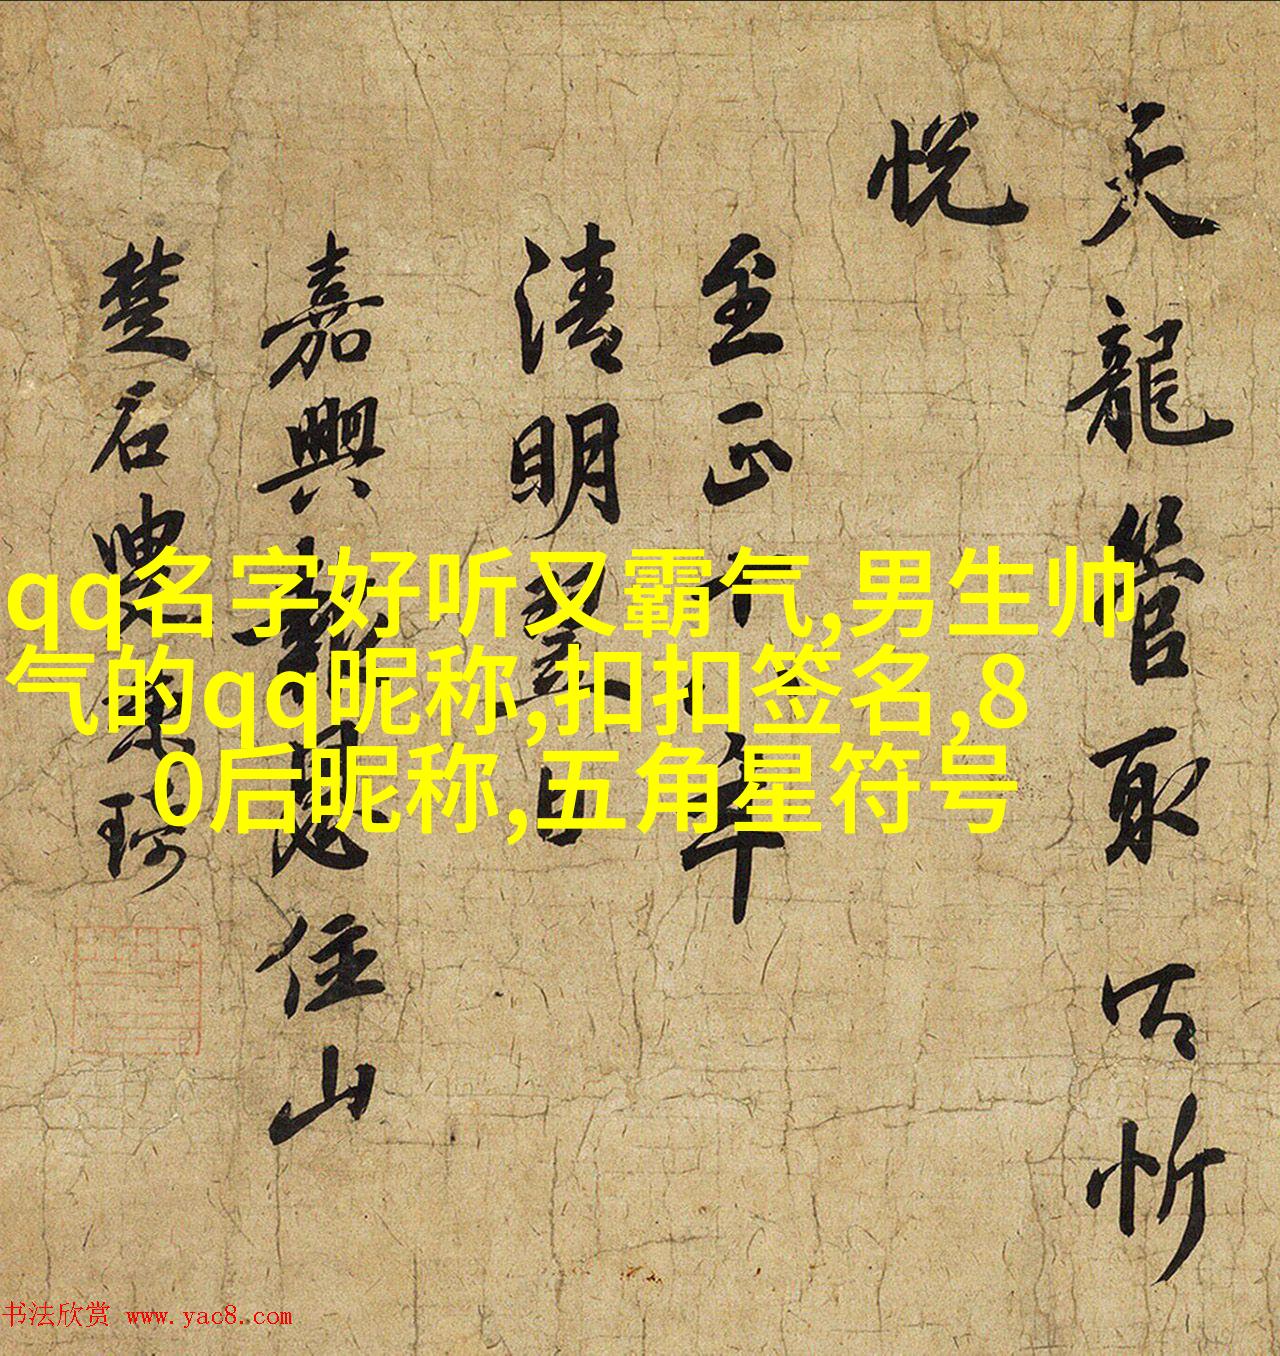 天龍管取忻
悅
至正年
清明翌日
嘉興報恩住山
楚石琦
qq名字好听又霸气,男生帅
气的qq昵称,扣扣签名,8
0后昵称,五角星符号
书法欣赏 www.yac8.com